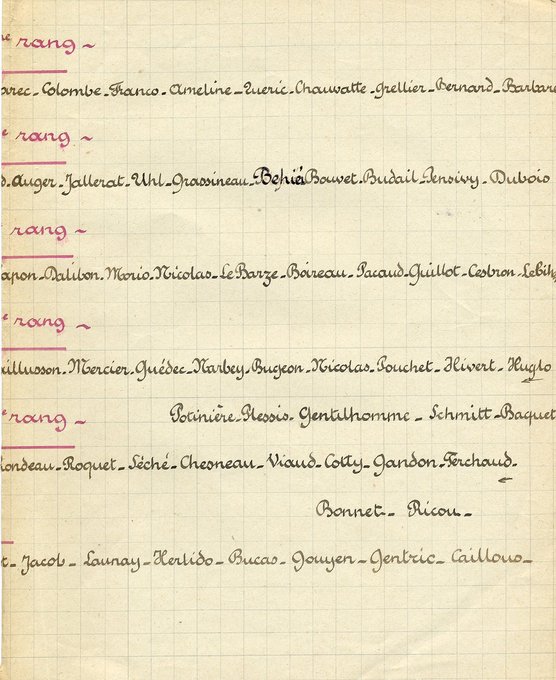 rang ~
arec - Colombe - Franco - Ameline - Queric - Chauvatte - Grellier - Bernard - Barbare
e rang ~
d - Auger - Jallerat - Uhl - Grassineau - Bouvet - Budail - Pensivy - Dubois
rang ~
apon - Dalibon - Morio - Nicolas - Le Barze - Boireau - Pacaud - Guillot - Cesbron - Lebih
e rang ~
aillusson - Mercier - Guédec - Narbey - Bugeon - Nicolas - Pouchet - Hivert - Huglo
e rang ~ Potinière - Plessis - Gentilhomme - Schmitt - Baquet
ondeau - Roquet - Séché - Chesneau - Viaud - Cotty - Gandon - Ferchaud -
Bonnet - Ricou -
t - Jacob - Launay - Herlido - Bucas - Gouyen - Gentric - Caillous -